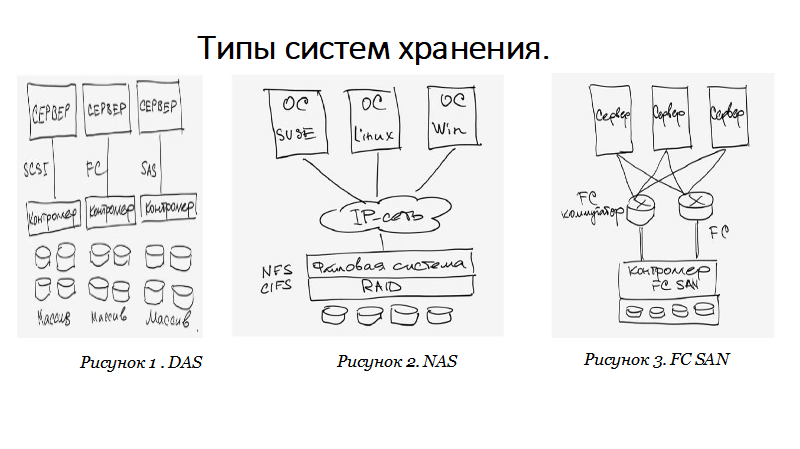 Типы систем хранения.
СЕРВЕР СЕРВЕР СЕРВЕР
SCSI FC SAS
Контролер Контролер Контролер
Массив Массив Массив.
Рисунок 1 . DAS
ОС SUSE
ОС Linux
ОС Win
IP-сеть
NFS
CIFS
Файловая система
RAID
Рисунок 2. NAS
Сервер Сервер Сервер
FC
коммутатор
FC
Контролер
FC SAN
Рисунок 3. FC SAN